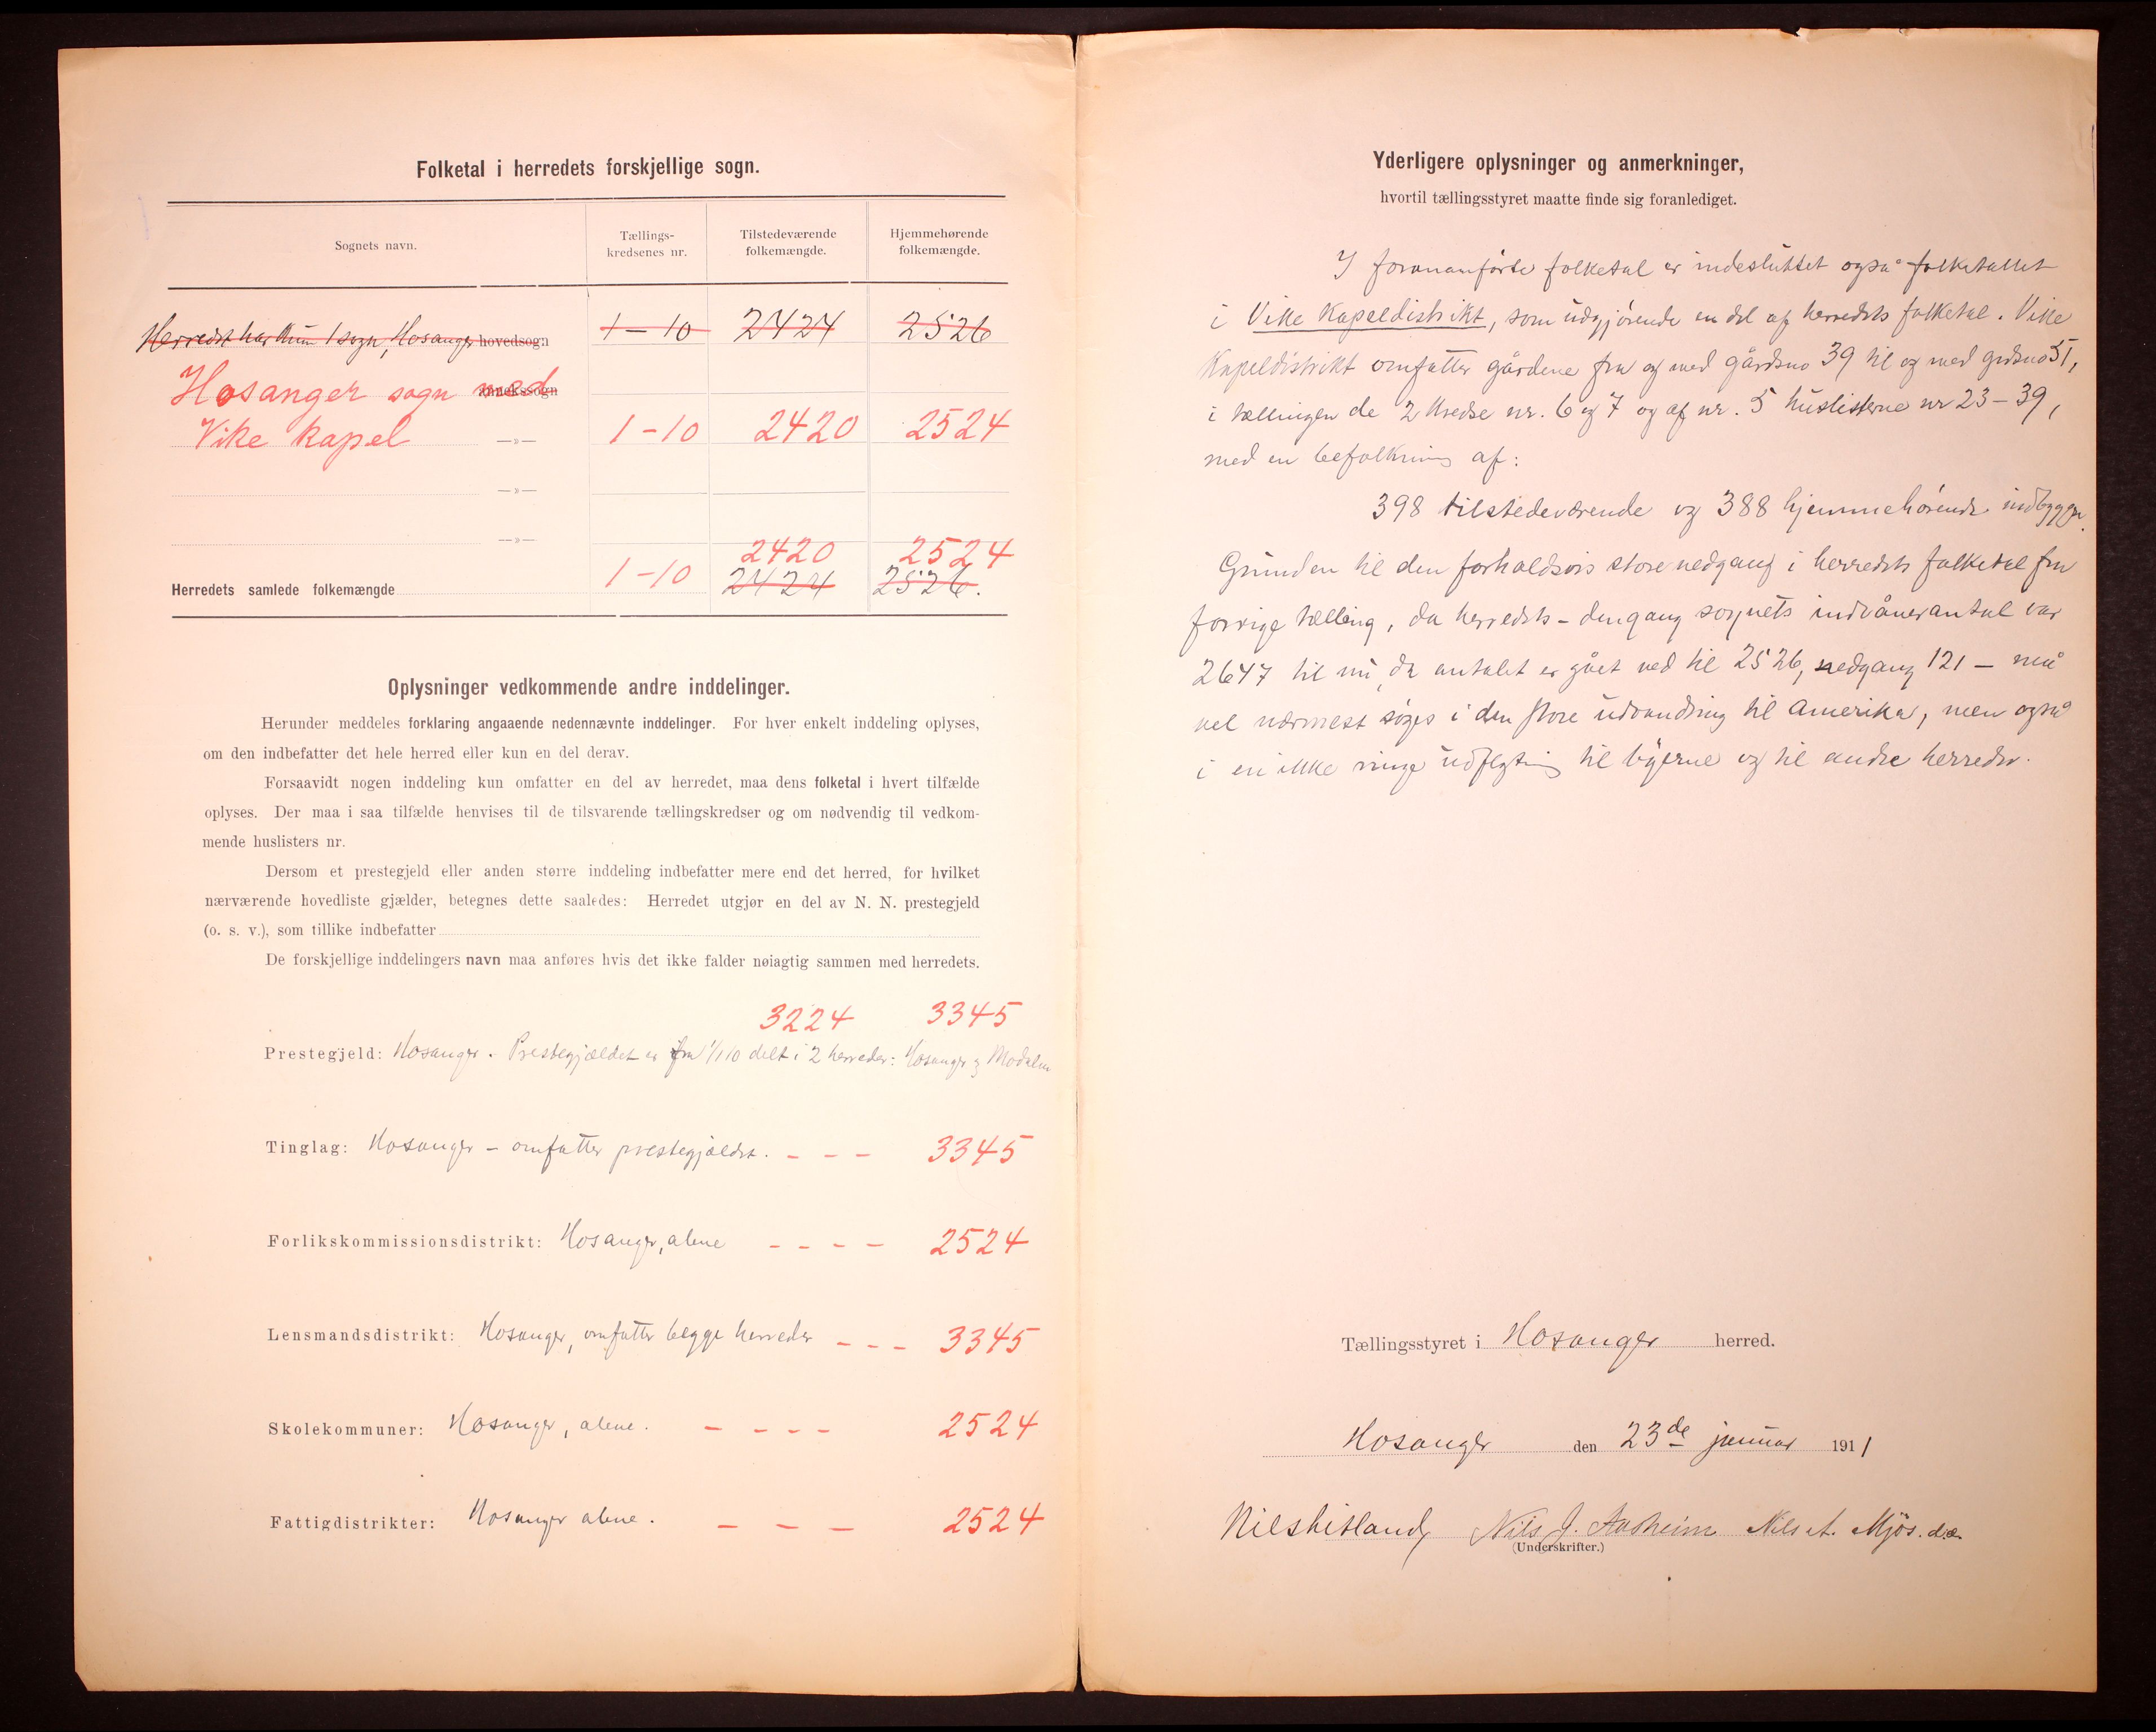 Folketal i herredets forskjellige sogn.
Sognets navn.
Tællings-
kredsenes nr.
Tilstedeværende
folkemængde.
Hjemmehørende
folkemængde.
Herredet har kun 1 sogn, Hosanger hovedsogn 1-10 2424 2526
Hosanger sogn med annekssogn
Vike kapel —»— 1-10 2420 2524
—»—
—»—
2420 2524
Herredets samlede folkemængde 1-10 2424 2526.
Oplysninger vedkommende andre inddelinger.
Herunder meddeles forklaring angaaende nedennævnte inddelinger. For hver enkelt inddeling oplyses,
om den indbefatter det hele herred eller kun en del derav.
Forsaavidt nogen inddeling kun omfatter en del av herredet, maa dens folketal i hvert tilfælde
oplyses. Der maa i saa tilfælde henvises til de tilsvarende tællingskredser og om nødvendig til vedkom-
mende huslisters nr.
Dersom et prestegjeld eller anden større inddeling indbefatter mere end det herred, for hvilket
nærværende hovedliste gjælder, betegnes dette saaledes: Herredet utgjør en del av N. N. prestegjeld
(o. s. v.), som tillike indbefatter
De forskjellige inddelingers navn maa anføres hvis det ikke falder nøiagtig sammen med herredets.
3224 3345
Prestegjeld: Hosanger. Prestegjældet er fra 1/1 10 delt i 2 herreder: Hosanger og Modalen
Tinglag: Hosanger - omfatter prestegjældet. - - - 3345
Forlikskommissionsdistrikt: Hosanger, alene - - - - 2524
Lensmandsdistrikt: Hosanger, omfatter begge herreder - - - 3345
Skolekommuner: Hosanger, alene. - - - - 2524
Fattigdistrikter: Hosanger alene. - - - 2524
Yderligere oplysninger og anmerkninger,
hvortil tællingsstyret maatte finde sig foranlediget.
I forananførte folketal er indesluttet også folketallet
i Vike Kapeldistrikt, som udgjørende en del af herredets folketal. Vike
Kapeldistrikt omfatter gårdene fra og med gårdsno 39 til og med grdsno 51,
i tællingen de 2 Kredse nr. 6 og 7 og af nr. 5 huslisterne nr 23-39,
med en befolkning af:
398 tilstedeværende og 388 hjemmehørende indbygger.
Grunden til den forholdsvis store nedgang i herredets folketal fra
forrige tælling, da herredets - dengang sognets indvånerantal var
2647 til nu, da antalet er gået ned til 2526, nedgang 121 - må
vel nærmest søges i den store udvandring til Amerika, men også
i en ikke ringe udflytning til byerne og til andre herreder.
Tællingsstyret i Hosanger herred.
Hosanger den 23de januar 1911
Nils Nils J. Aasheim Nils A. Mjøs.
(Underskrifter.)